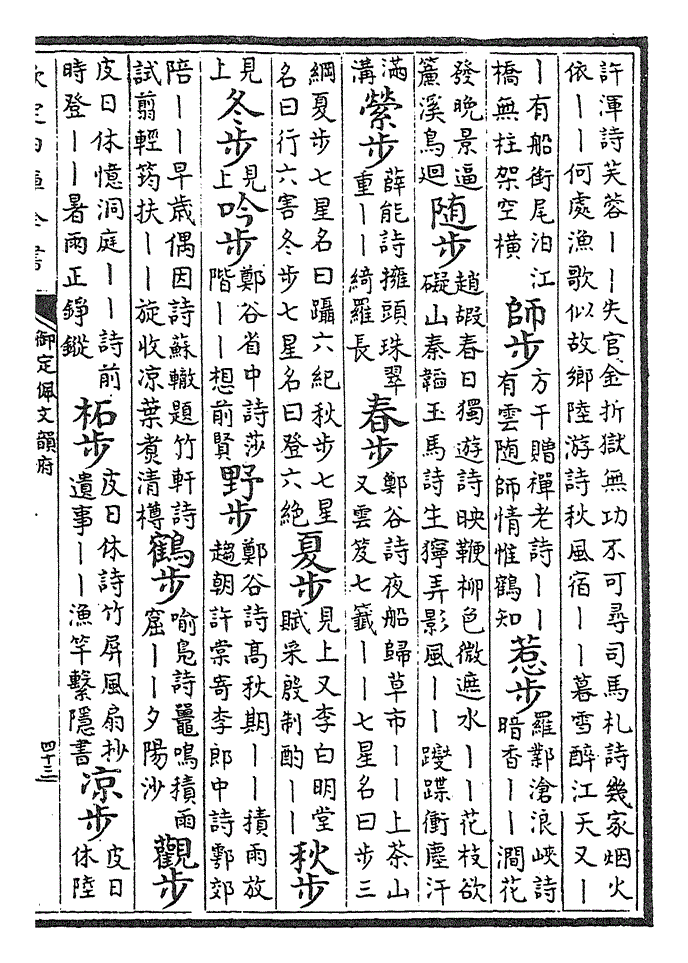 許渾詩芙蓉｜｜失官金折獄無功不可尋司馬札詩幾家烟火
依｜｜何處漁歌似故鄉陸游詩秋風宿｜｜暮雪醉江天又｜
｜有船銜尾泊江
橋無柱架空橫
師步
方干贈禪老詩｜｜
有雲随師情惟鶴知
惹步
羅鄴滄浪峽詩
暗香｜｜澗花
發晚景逼
簾溪鳥迴
随步
趙嘏春日獨遊詩映鞭柳色微遮水｜｜花枝欲
礙山秦韜玉馬詩生獰弄影風｜｜躞蹀衝塵汗
滿
溝
縈步
薛能詩擁頭珠翠
重｜｜綺羅長
春步
鄭谷詩夜船歸草市｜｜上茶山
又雲笈七籤｜｜七星名曰步三
綱夏步七星名曰躡六紀秋步七星
名曰行六害冬步七星名曰登六絶
夏步
見上又李白明堂
賦采殷制酌｜｜
秋步
見
上
冬步
見
上
吟步
鄭谷省中詩莎
階｜｜想前賢
野步
鄭谷詩高秋期｜｜積雨放
趨朝許棠寄李郎中詩鄠郊
陪｜｜早歲偶因詩蘇轍題竹軒詩
試翦輕筠扶｜｜旋收凉葉煑清樽
鶴步
喻鳧詩鼉鳴積雨
窟｜｜夕陽沙
觀步
皮日休憶洞庭｜｜詩前
時登｜｜暑雨正錚鏦
柘步
皮日休詩竹屏風扇抄
遺事｜｜漁竿繫隱書
凉步
皮日
休陸
欽定四庫全書
御定佩文韻府
四十三